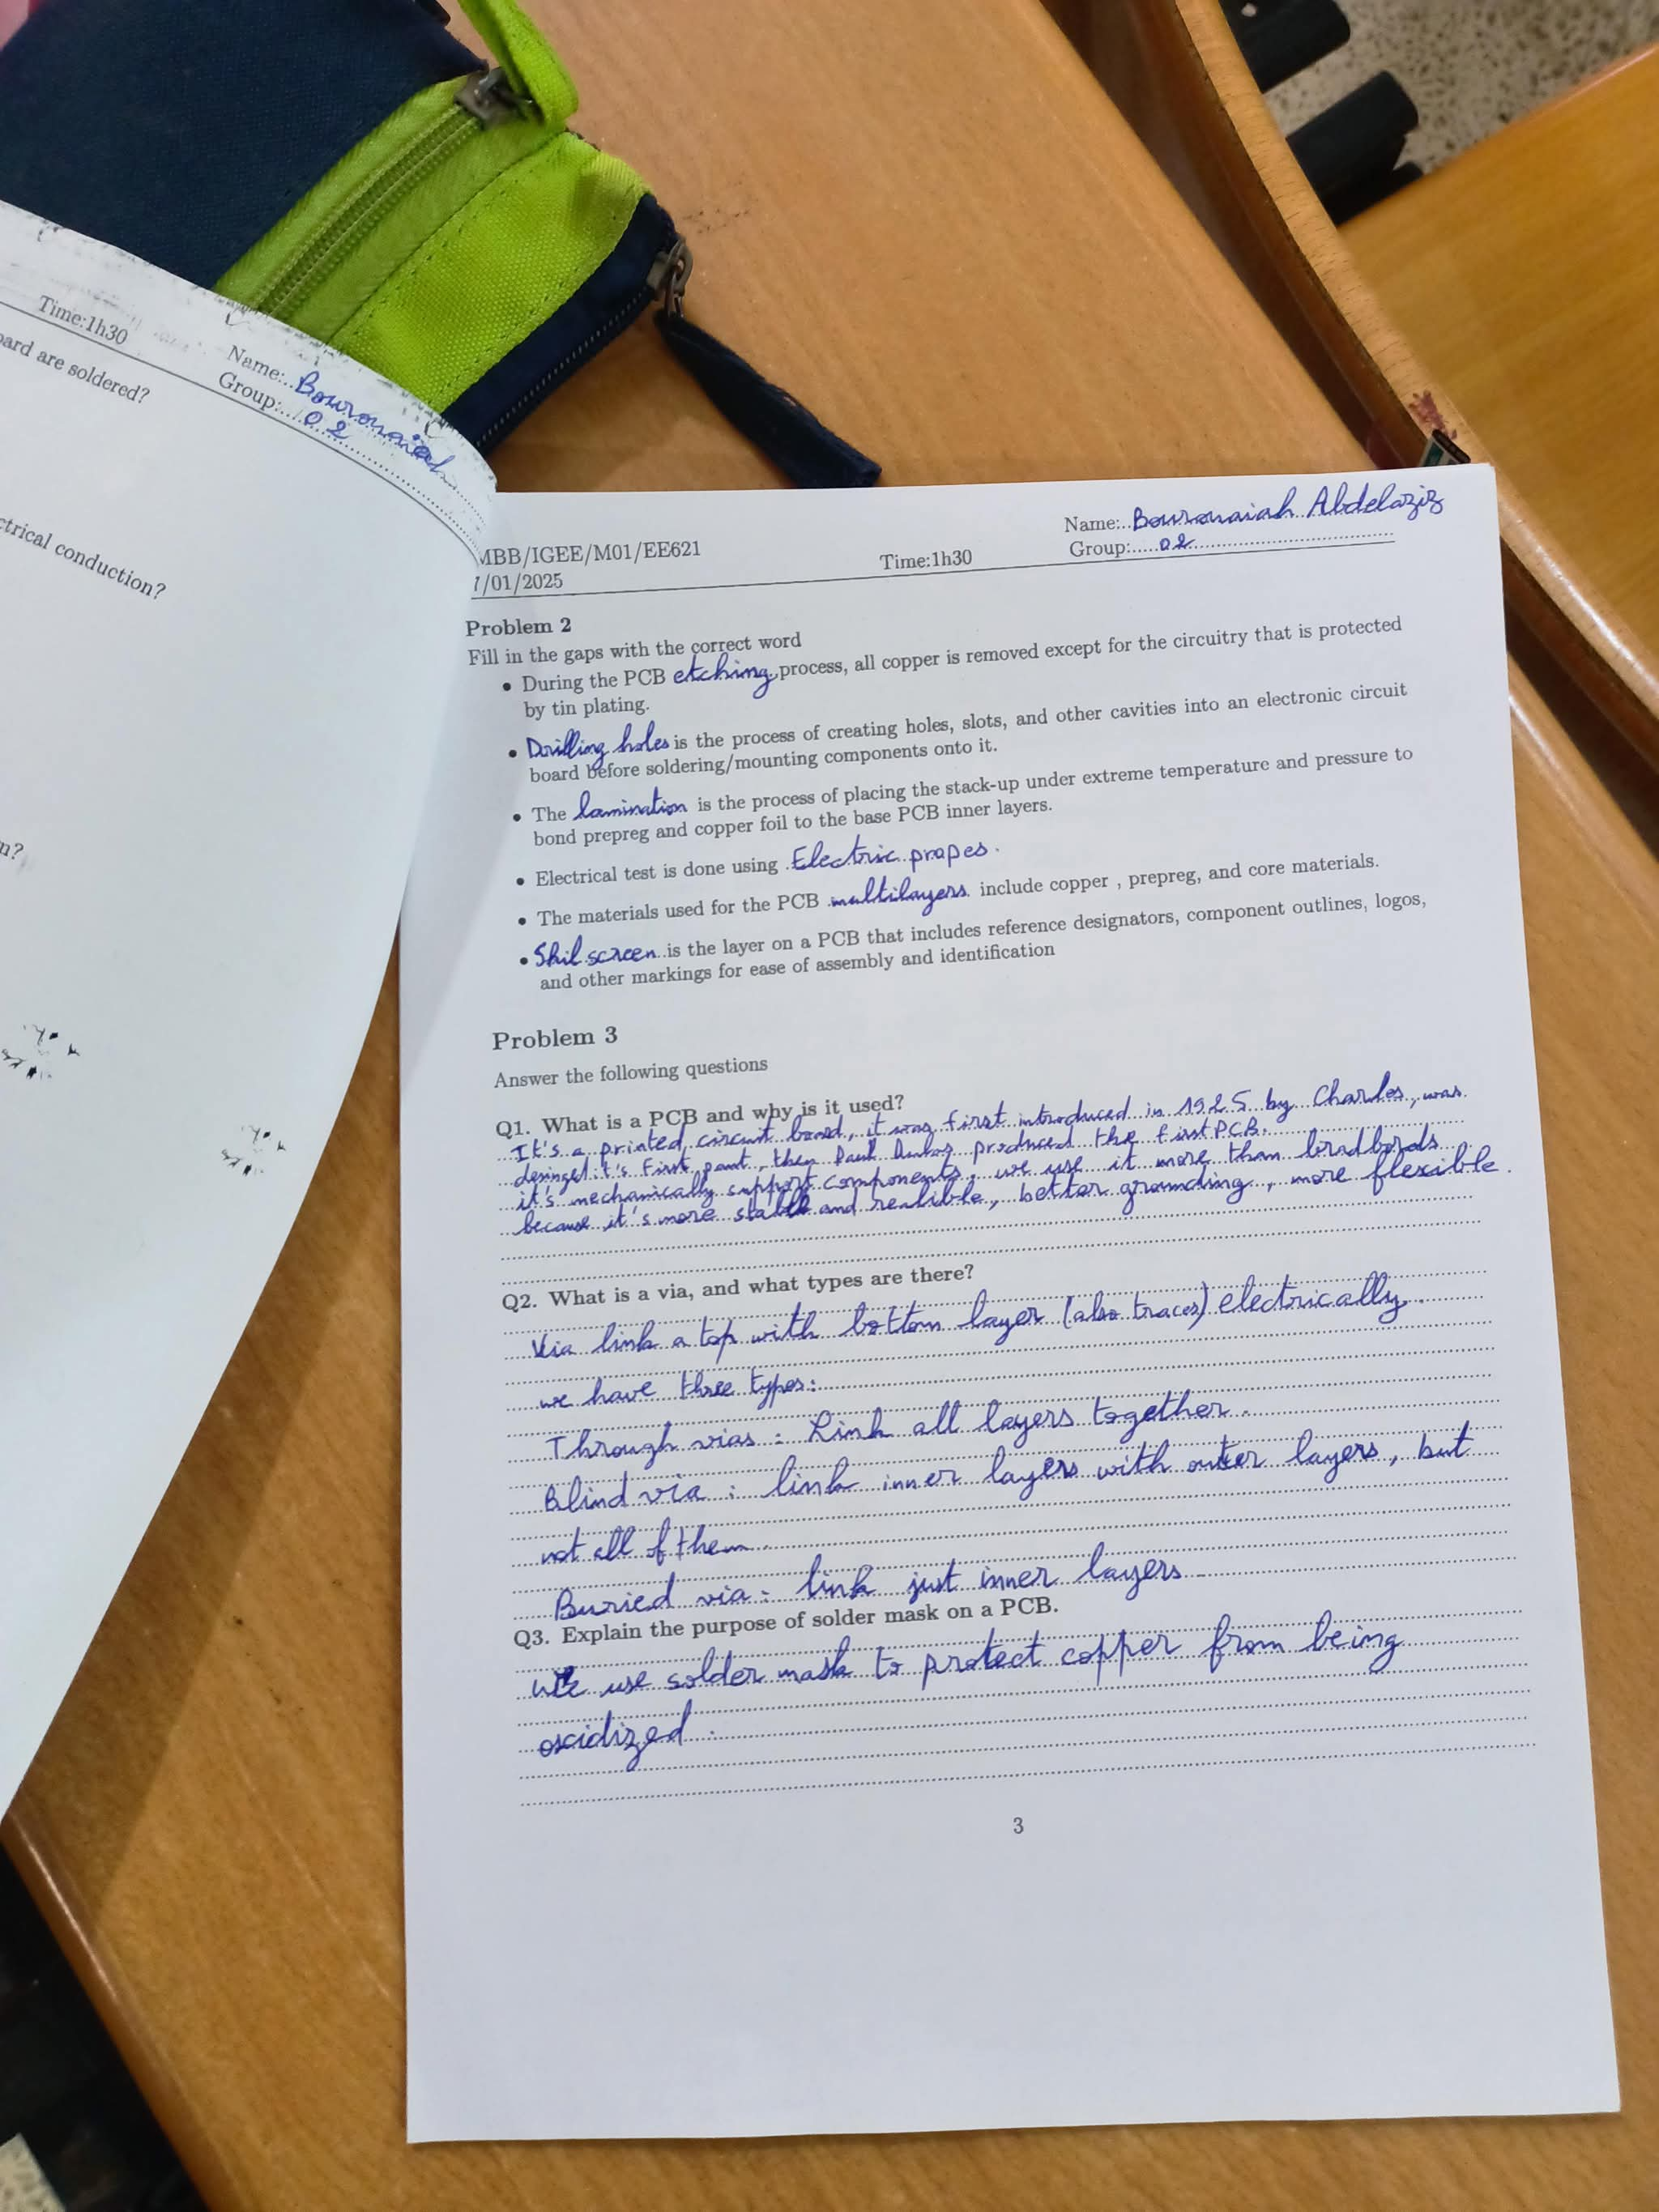 Time:1h30
Name:..Bourouaiah
Group:...02
ard are soldered?
ctrical conduction?
n?
MBB/IGEE/M01/EE621
Time:1h30
Name:..Bourouaiah Abdelaziz
/01/2025
Group:.....02
Problem 2
Fill in the gaps with the correct word
• During the PCB etching process, all copper is removed except for the circuitry that is protected
by tin plating.
• Drilling holes is the process of creating holes, slots, and other cavities into an electronic circuit
board before soldering/mounting components onto it.
• The lamination is the process of placing the stack-up under extreme temperature and pressure to
bond prepreg and copper foil to the base PCB inner layers.
• Electrical test is done using Electric propes.
• The materials used for the PCB multilayers include copper , prepreg, and core materials.
• Skil screen is the layer on a PCB that includes reference designators, component outlines, logos,
and other markings for ease of assembly and identification
Problem 3
Answer the following questions
Q1. What is a PCB and why is it used?
It's a printed circuit board, it was first introduced in 1925 by Charles, was
it's first , then Paul produced the first PCB.
it's mechanically support components, we use it more than bradbords
because it's more stable and realible, better grounding, more flexible.
Q2. What is a via, and what types are there?
Via link a top with bottom layer (also traces) electrically.
we have three types:
Through vias : Link all layers together.
Blind via : link inner layers with outer layers, but
not all of them
Buried via : link just inner layers
Q3. Explain the purpose of solder mask on a PCB.
we use solder mask to protect copper from being
oxidized.
3